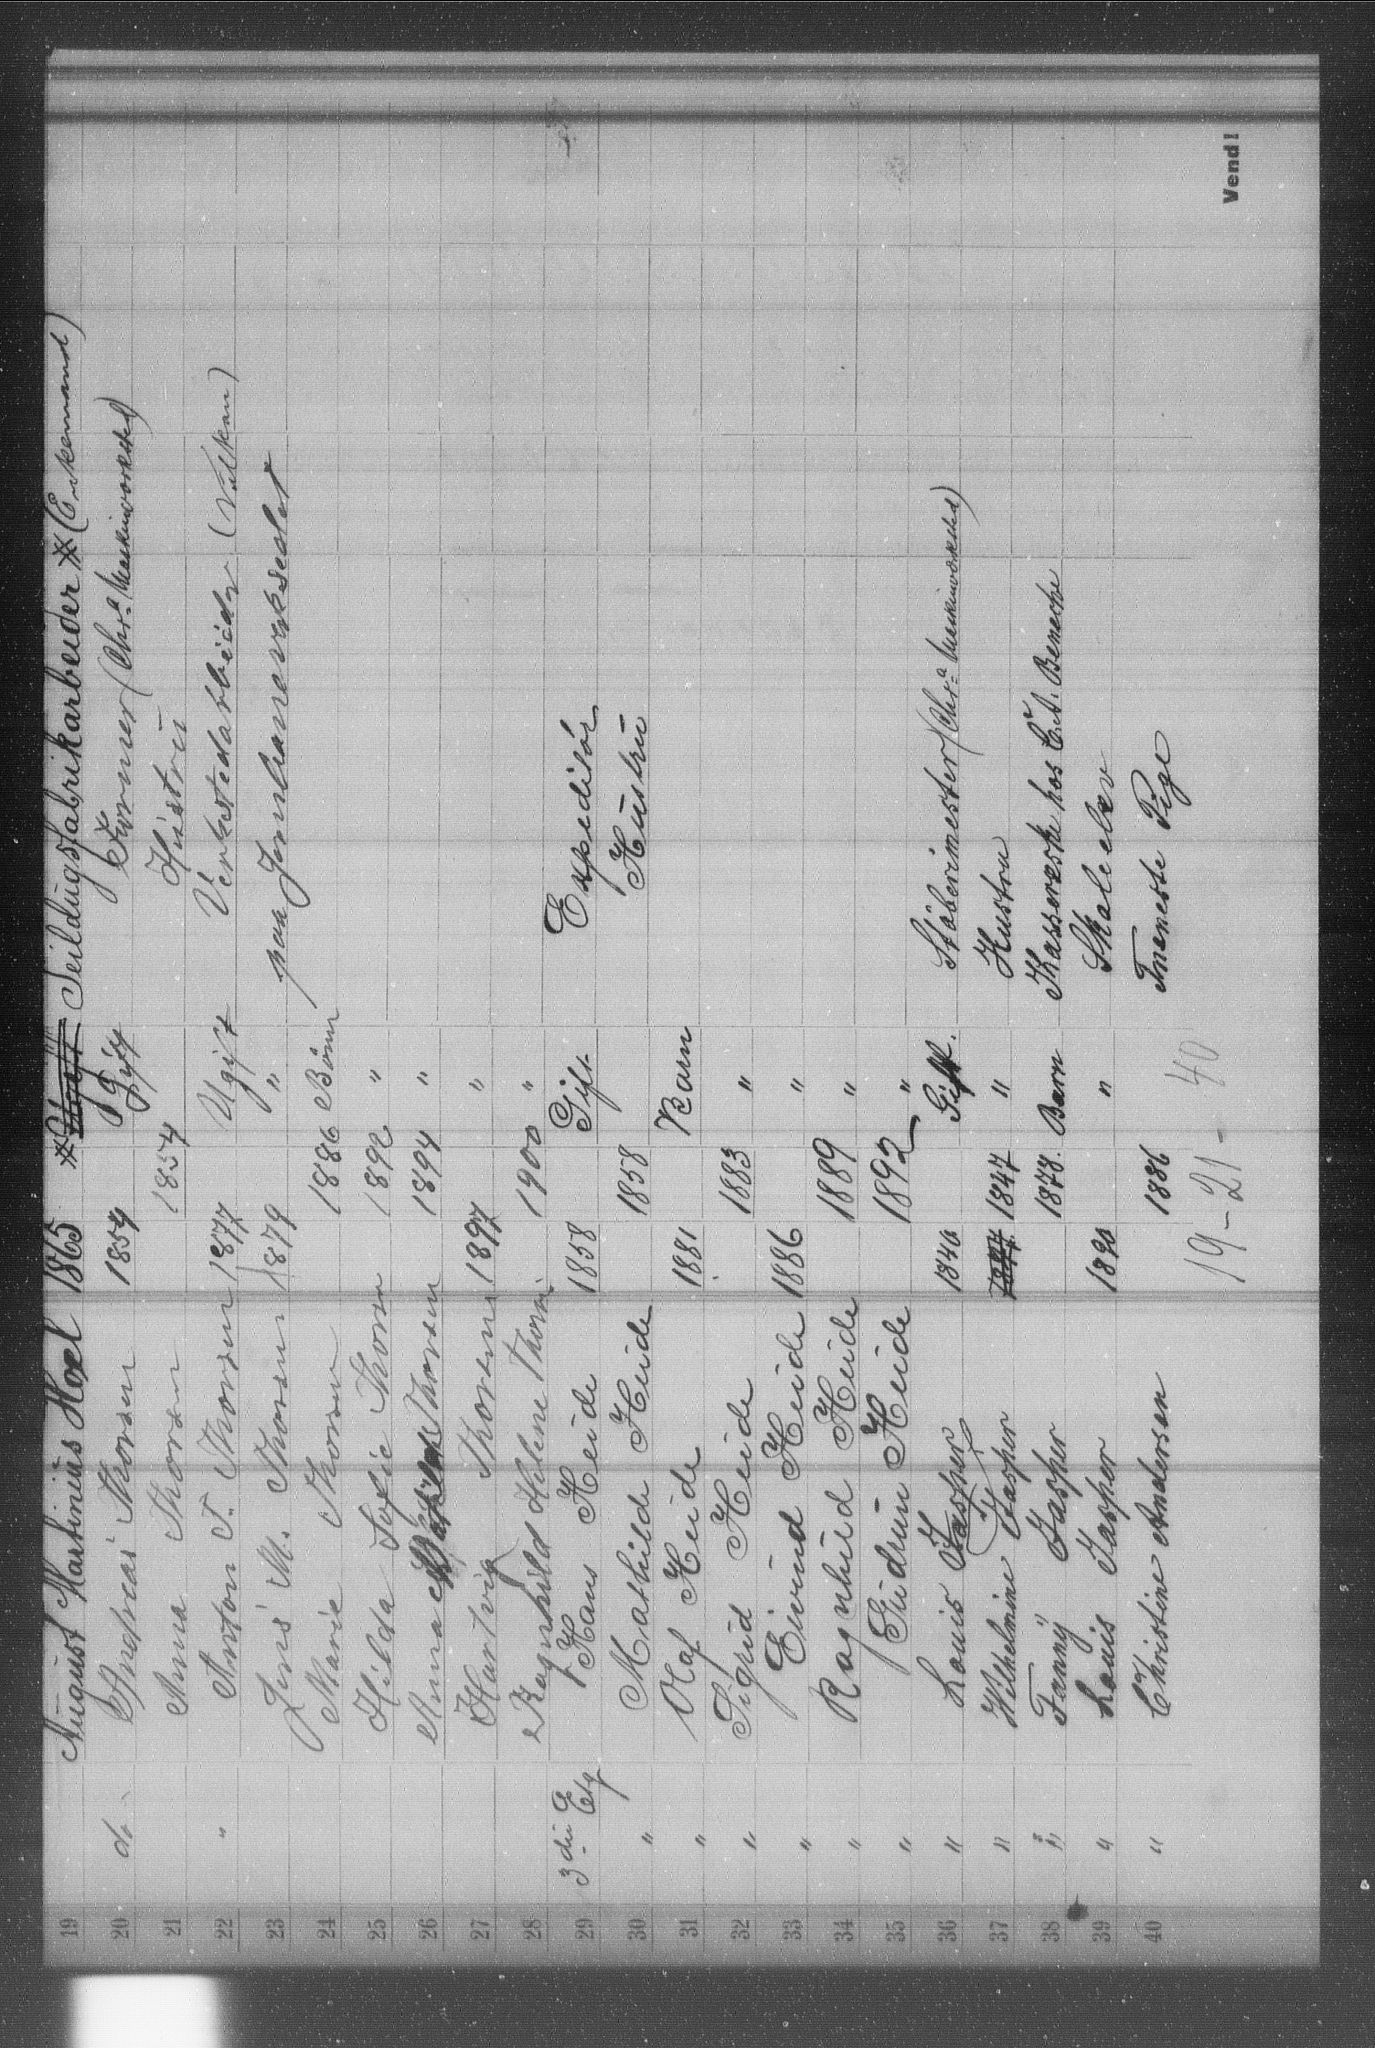 19 August Martinius Hoel 1865 Ugift Seildugsfabrikarbeider (Enkemand)
20 do Andreas Thorsen 1854 Gift Former (Chr.a Mek. Værksted)
21 Anna Thorsen 1854 Hustru
22 " Anton T. Thorsen 1877 Ugift Verkstedarbeider (Vulkan)
23 Jens M. Thorsen 1879 " paa Jernbaneverkstedet
24 Marie Thorsen 1886 Børn
25 Hilda Sofie Thorsen 1892 "
26 Anna Thorsen 1894 "
27 Hartvig Thorsen 1897 "
28 Ragnhild Helene Thorsen 1900 "
29 3die Etg Hans Heide 1858 Gift Expeditør
30 " Mathilde Heide 1858 Hustru
31 " Olaf Heide 1881 Barn
32 " Sigrid Heide 1883 "
33 " Eivind Heide 1886 "
34 " Ragnhild Heide 1889 "
35 " Gudrun Heide 1892 "
36 " Louis Jasper 1840 Gift. Støberimester (Chr.a Mekinværksted)
37 " Wilhelmine Jasper 1847 1847 " Hustru
38 " Fanny Jasper 1878. Barn Kassererske hos Benecke
39 " Louis Jasper 1890 " Skoleelev
40 " Christine Andersen 1886 Tjeneste Pige
19 - 21 - 40
Vend!